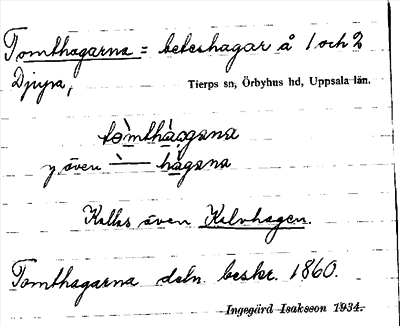 Tomthagarna = beteshagar å 1 och 2
Djupa,
Tierps sn, Örbyhus hd, Uppsala län.
tòmthàgana
y även ̀ — hàgana
Kallas även Kalvhagen.
Tomthagarna deln. beskr. 1860.
Ingegärd Isaksson 1934.